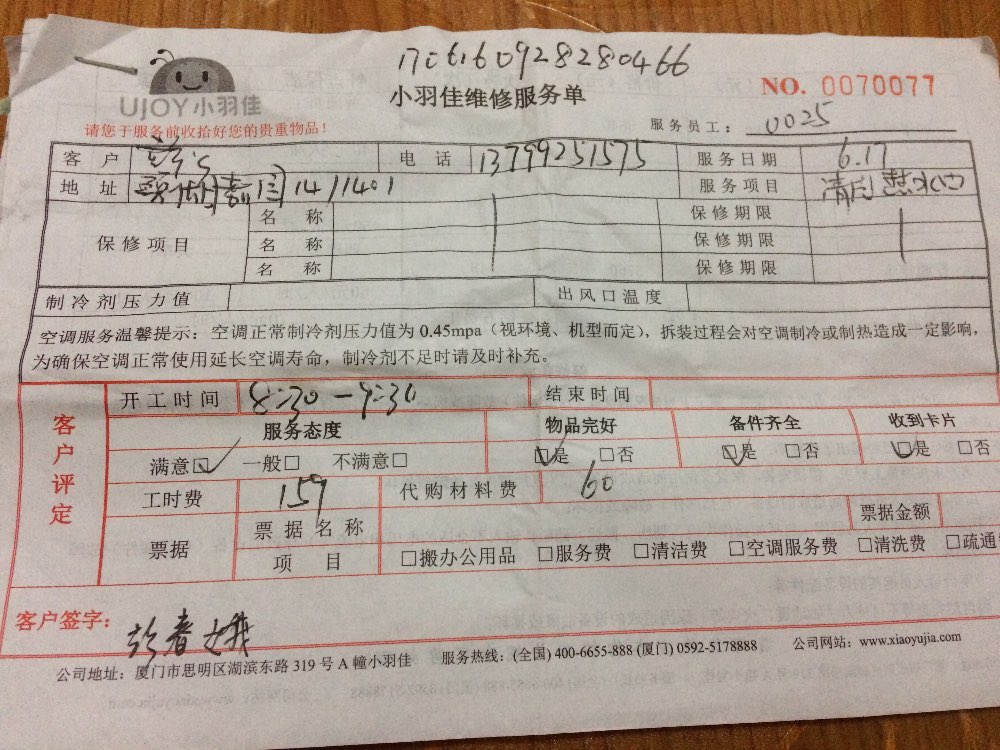 170616092828 0466
小羽佳维修服务单
NO. 0070077
UJOY小羽佳
请您于服务前收拾好您的贵重物品!
服务员工: 0025
客户 电话 13799251575 服务日期 6.17
地址 14/1401 服务项目 清洗
保修项目 名称 保修期限
名称 保修期限
名称 保修期限
制冷剂压力值 出风口温度
空调服务温馨提示:空调正常制冷剂压力值为 0.45mpa(视环境、机型而定),拆装过程会对空调制冷或制热造成一定影响,
为确保空调正常使用延长空调寿命,制冷剂不足时请及时补充。
客户评定
开工时间 8:30—9:30 结束时间
服务态度 物品完好 备件齐全 收到卡片
满意☑ 一般□ 不满意□ ☑是 □否 ☑是 □否 ☑是 □否
工时费 159 代购材料费 60
票据 票据名称 票据金额
项目 □搬办公用品 □服务费 □清洁费 □空调服务费 □清洗费 □疏通
客户签字: 彭春娥
公司地址:厦门市思明区湖滨东路 319 号 A 幢小羽佳 服务热线:(全国) 400-6655-888 (厦门) 0592-5178888 公司网站:www.xiaoyujia.com